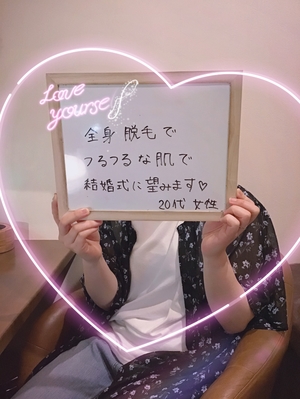 Love
yourself
全身脱毛で
つるつるな肌で
結婚式に望みます♡
20代 女性